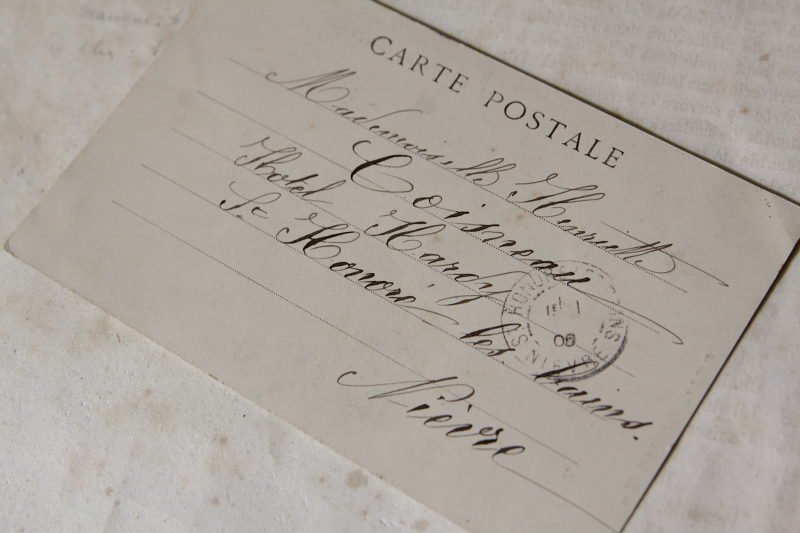 CARTE POSTALE
Mademoiselle Henriette
Coisneau
Hotel Hardy
St Honoré les bains.
Nièvre
ST HONORÉ LES BAINS
NIÈVRE
06